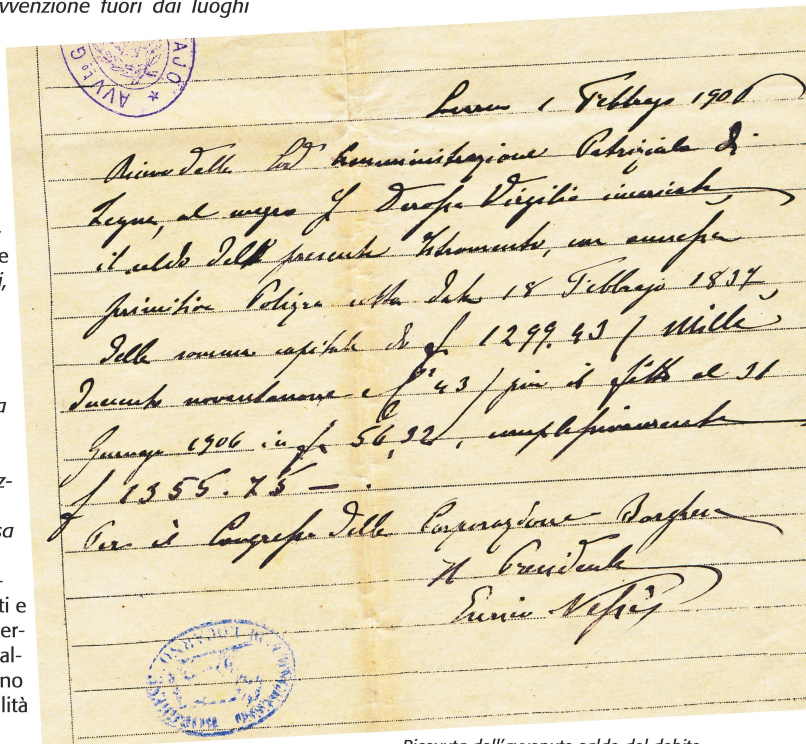 vvenzione fuori dai luoghi
AVV.to G
AJO
1 Febbrajo 1906
Amministrazione Patriziale di
al mezzo Virgilio
il saldo della presente Istromento, con annessa
primitiva Polizza data 18 Febbrajo 1837,
della somma capitale di f 1299.43 / Mille
duecento novantanove e 43 / più il fitto al 31
Gennajo 1906 in f 56,32, complessivamente
f 1355.75 — .
Per il Congresso della Corporazione Borghese
Il Presidente
e
i,
a
z-
sa
-
ti e
er-
al-
no
lità
Ricevuta dell'avvenuto saldo del debito